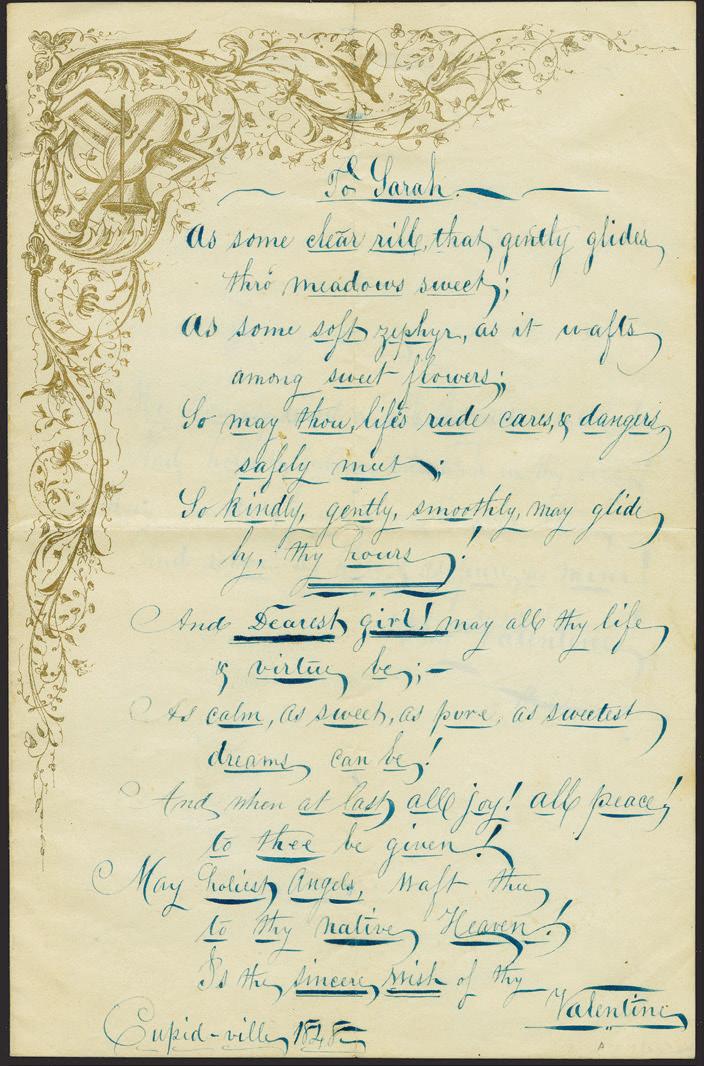 To Sarah.
As some clear rill, that gently glides
thro' meadows sweet;
As some soft zephyr, as it wafts
among sweet flowers;
So may thou, life's rude cares, & dangers,
safely meet;
So kindly, gently, smoothly, may glide
by, thy hours!
And Dearest girl! may all thy life
& virtue be;-
As calm, as sweet, as pure, as sweetest
dreams can be!
And when at last all joy! all peace!
to thee be given!
May holiest Angels, waft thee
to thy native Heaven!
Is the sincere wish of thy
Valentine
Cupid-ville, 1848